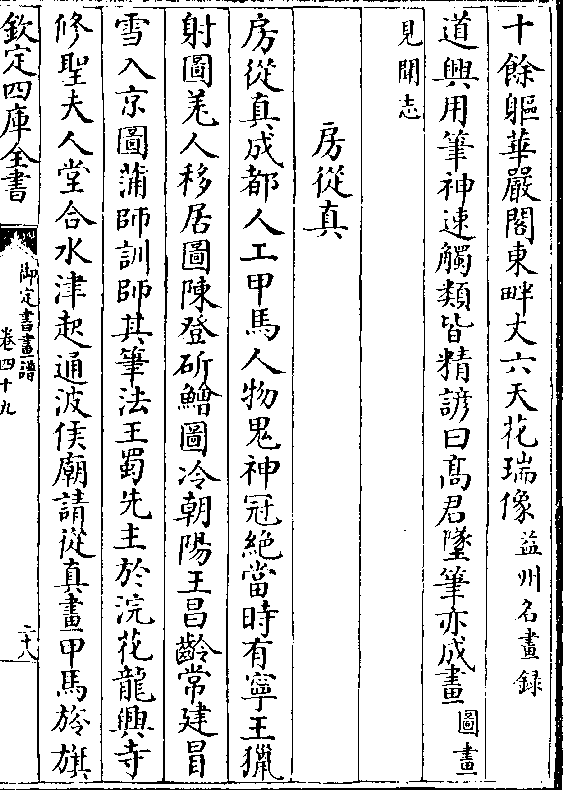 十餘軀華嚴閣東畔丈六天花瑞像益州名畫録
道興用筆神速觸類皆精諺曰髙君墜筆亦成畫圖畫
見聞志
房從真
房從真成都人工甲馬人物鬼神冠絶當時有寧王獵
射圖羌人移居圖陳登斫鱠圖冷朝陽王昌齡常建冒
雪入京圖蒲師訓師其筆法王蜀先主於浣花龍興寺
修聖夫人堂合水津起通波侯廟請從真畫甲馬旍旗
欽定四庫全書
御定書畫譜
卷四十九
二十八